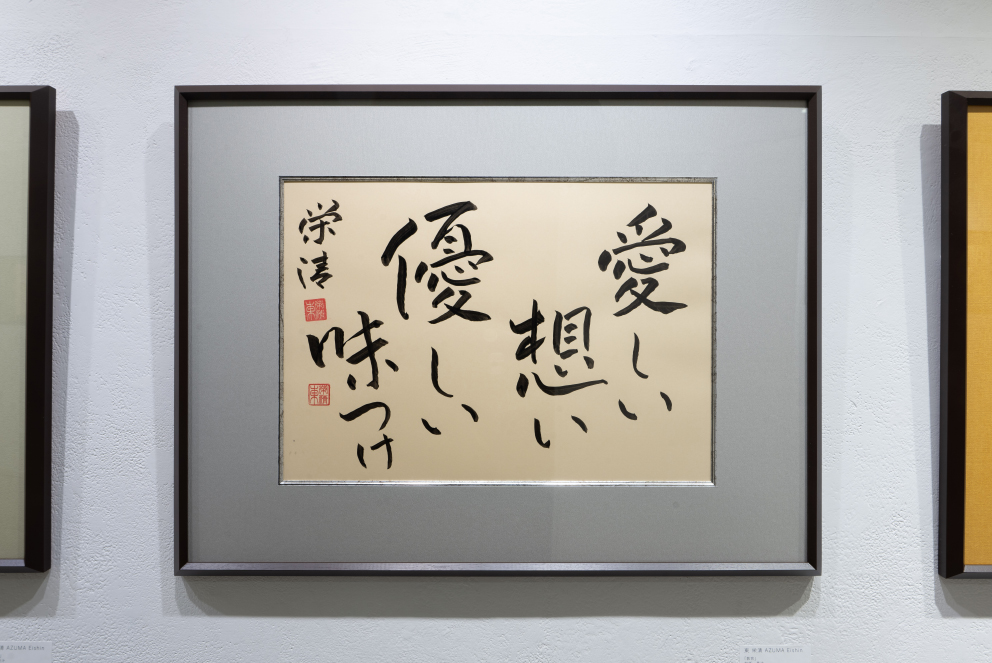 愛しい
想い
優しい
味つけ
栄清
AZUMA Eishin
東 栄清 AZUMA Eishin